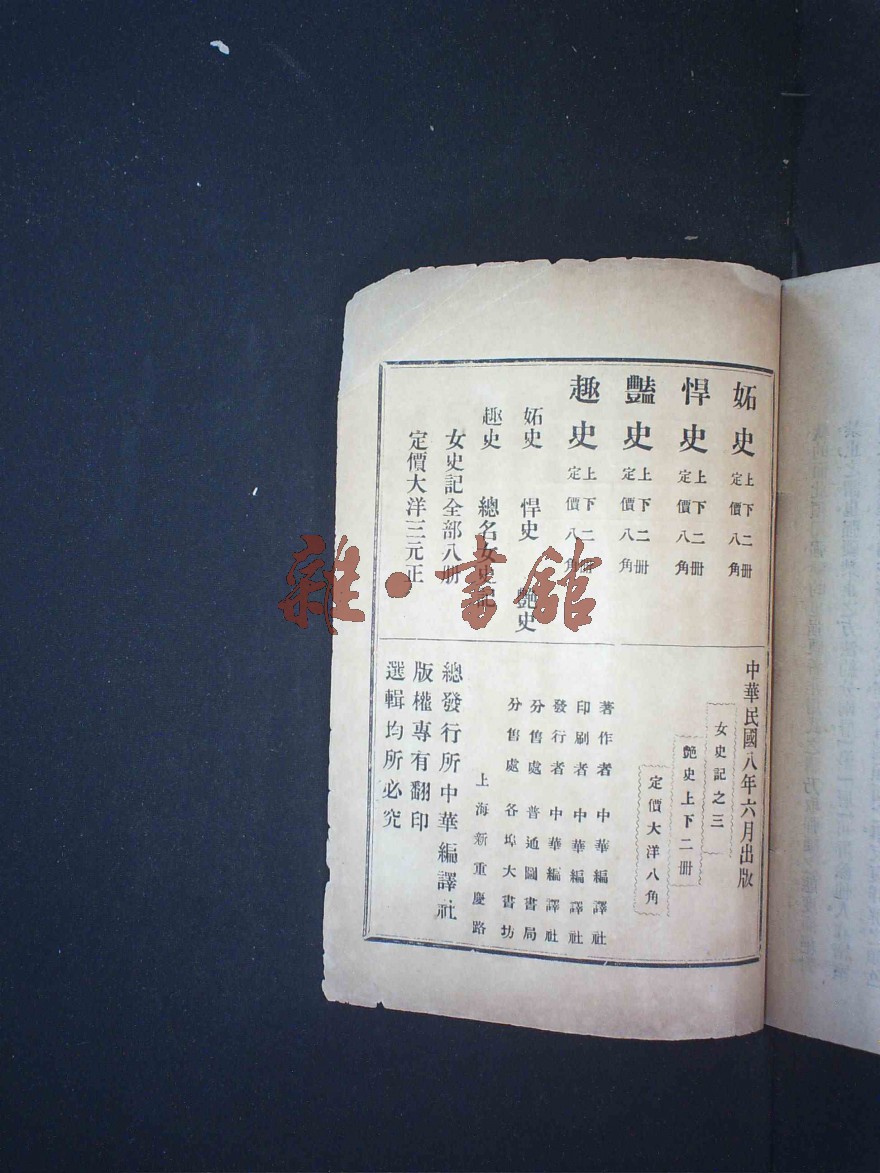 妬史 上下二冊 定價八角
悍史 上下二冊 定價八角
豔史 上下二冊 定價八角
趣史 上下二冊 定價八角
妬史 悍史 艶史
趣史 總名女史記
女史記全部八册
定價大洋三元正
中華民國八年六月出版
女史記之三
艶史上下二册
定價大洋八角
著作者 中華編譯社
印刷者 中華編譯社
發行者 中華編譯社
分售處 普通圖書局
分售處 各埠大書坊
上海新重慶路
總發行所中華編譯社
版權專有翻印
選輯均所必究
雜·書館